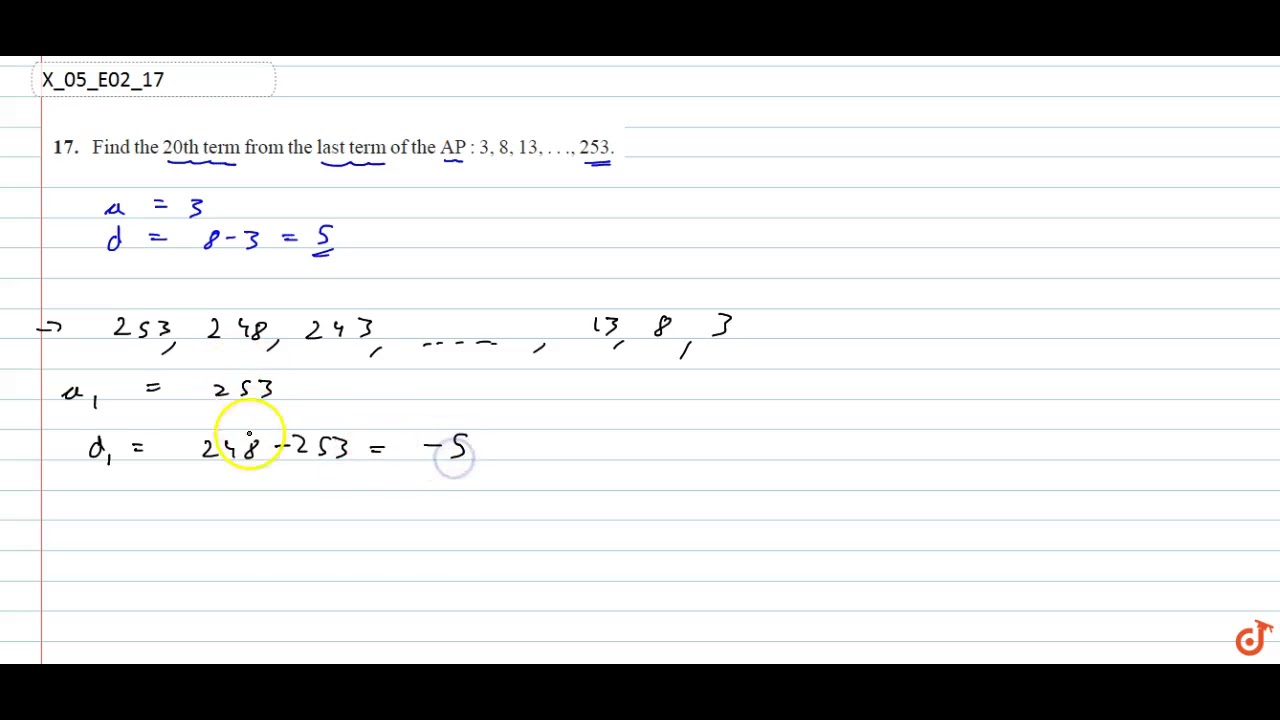 X_05_E02_17
17. Find the 20th term from the last term of the AP : 3, 8, 13, . . ., 253.
a = 3
d = 8 - 3 = 5
→ 253, 248, 243, ----- , 13, 8, 3
a₁ = 253
d₁ = 248 - 253 = -5